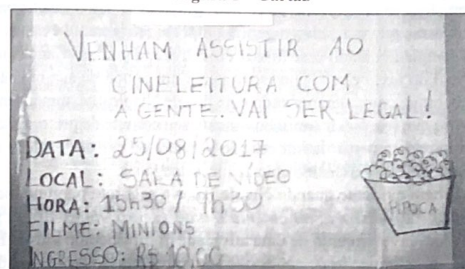 VENHAM ASSISTIR AO
CINELEITURA COM
A GENTE. VAI SER LEGAL!
DATA: 25/08/2017
LOCAL: SALA DE VÍDEO
HORA: 15h30 / 9h30
FILME: MINIONS
INGRESSO: R$ 10,00
PIPOCA